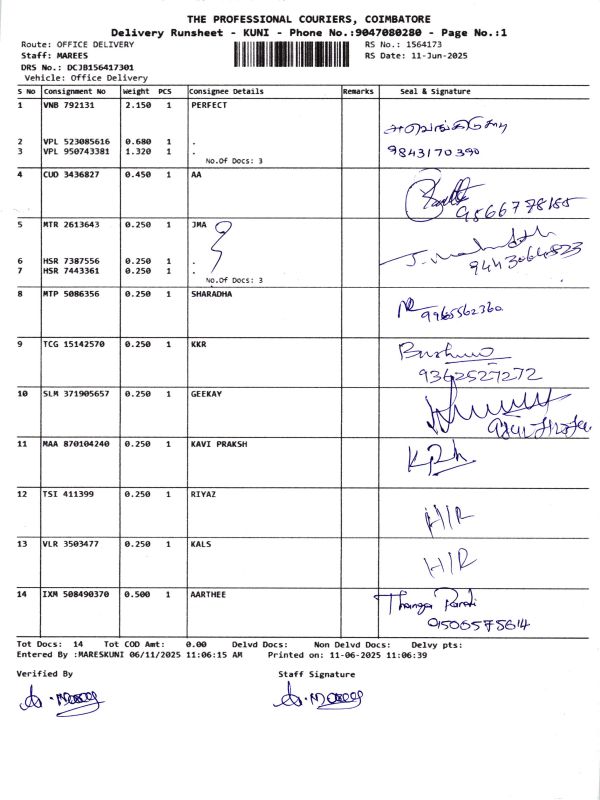 THE PROFESSIONAL COURIERS, COIMBATORE
Delivery Runsheet - KUNI - Phone No.:9047080280 - Page No.:1
Route: OFFICE DELIVERY RS No.: 1564173
Staff: MAREES RS Date: 11-Jun-2025
DRS No.: DCJB156417301
Vehicle: Office Delivery
S No Consignment No Weight PCS Consignee Details Remarks Seal & Signature
1 VNB 792131 2.150 1 PERFECT
2 VPL 523085616 0.680 1 .
3 VPL 950743381 1.320 1 . 9843170390
No.Of Docs: 3
4 CUD 3436827 0.450 1 AA
9566778185
5 MTR 2613643 0.250 1 JMA
6 HSR 7387556 0.250 1 .
7 HSR 7443361 0.250 1 . 9443064823
No.Of Docs: 3
8 MTP 5086356 0.250 1 SHARADHA
9965562360
9 TCG 15142570 0.250 1 KKR
9362527272
10 SLM 371905657 0.250 1 GEEKAY
11 MAA 870104240 0.250 1 KAVI PRAKSH
12 TSI 411399 0.250 1 RIYAZ
H/R
13 VLR 3503477 0.250 1 KALS
H/R
14 IXM 508490370 0.500 1 AARTHEE
Thanga
9506575614
Tot Docs: 14 Tot COD Amt: 0.00 Delvd Docs: Non Delvd Docs: Delvy pts:
Entered By :MARESKUNI 06/11/2025 11:06:15 AM Printed on: 11-06-2025 11:06:39
Verified By Staff Signature